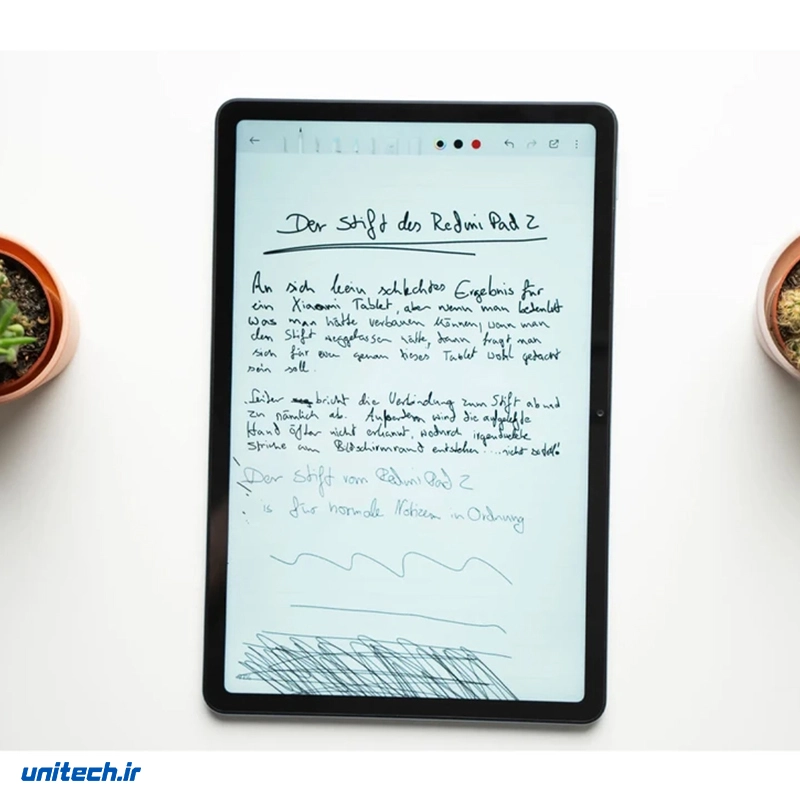 Der Stift des Redmi Pad 2
An sich kein schlechtes Ergebnis für
ein Xiaomi Tablet, aber wenn man bedenkt
was man hätte verbauen können, wenn man
den Stift weggelassen hätte, dann fragt man
sich für wen genau dieses Tablet wohl gedacht
sein soll.
Leider bricht die Verbindung zum Stift ab und
zu nämlich ab. Außerdem wird die aufgelegte
Hand öfter nicht erkannt, wodurch irgendwelche
Striche am Bildschirmrand entstehen ... nicht
Der Stift vom Redmi Pad 2
is für normale Notizen in Ordnung
unitech.ir